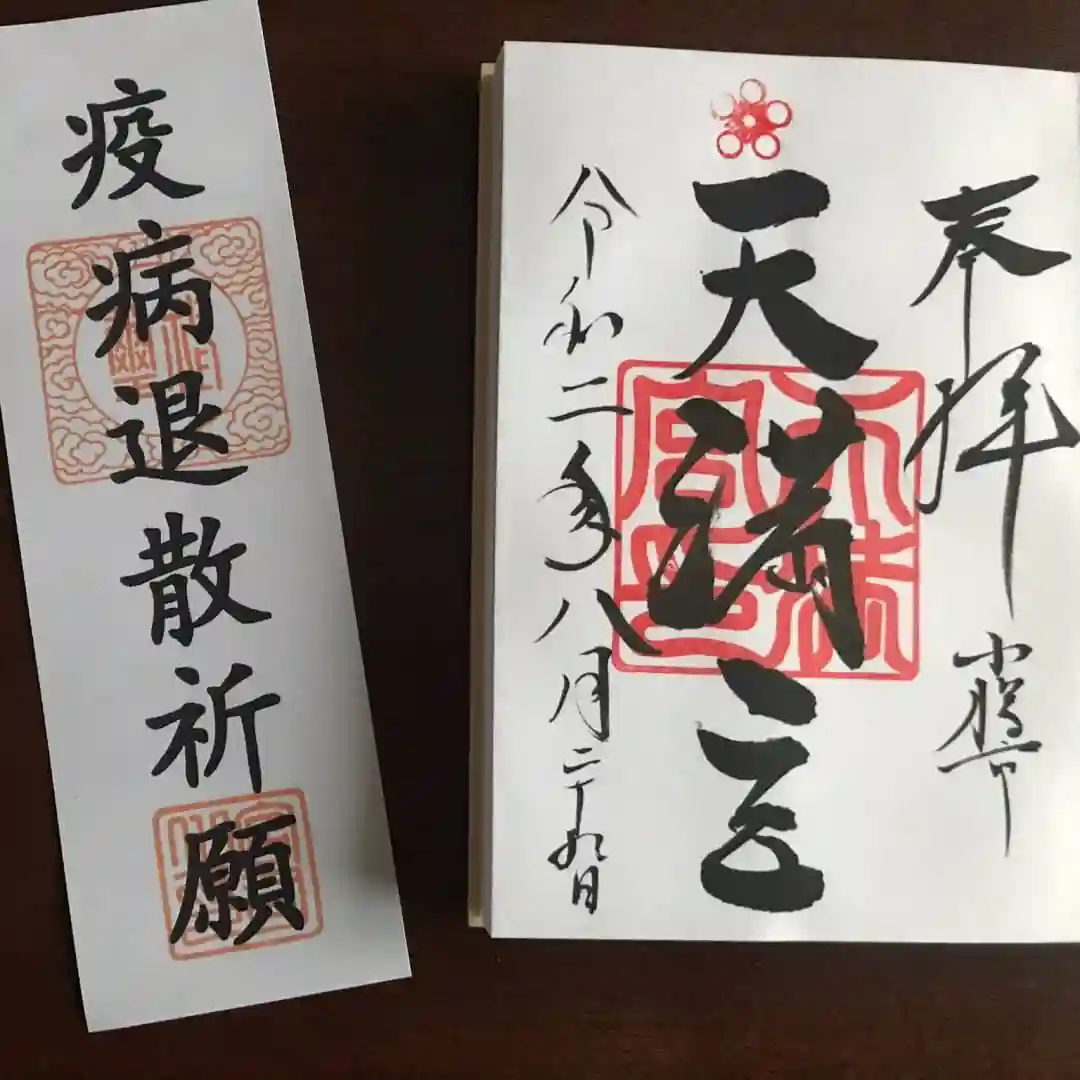 奉拝
天満宮
令和二年八月二十九日
疫病退散祈願